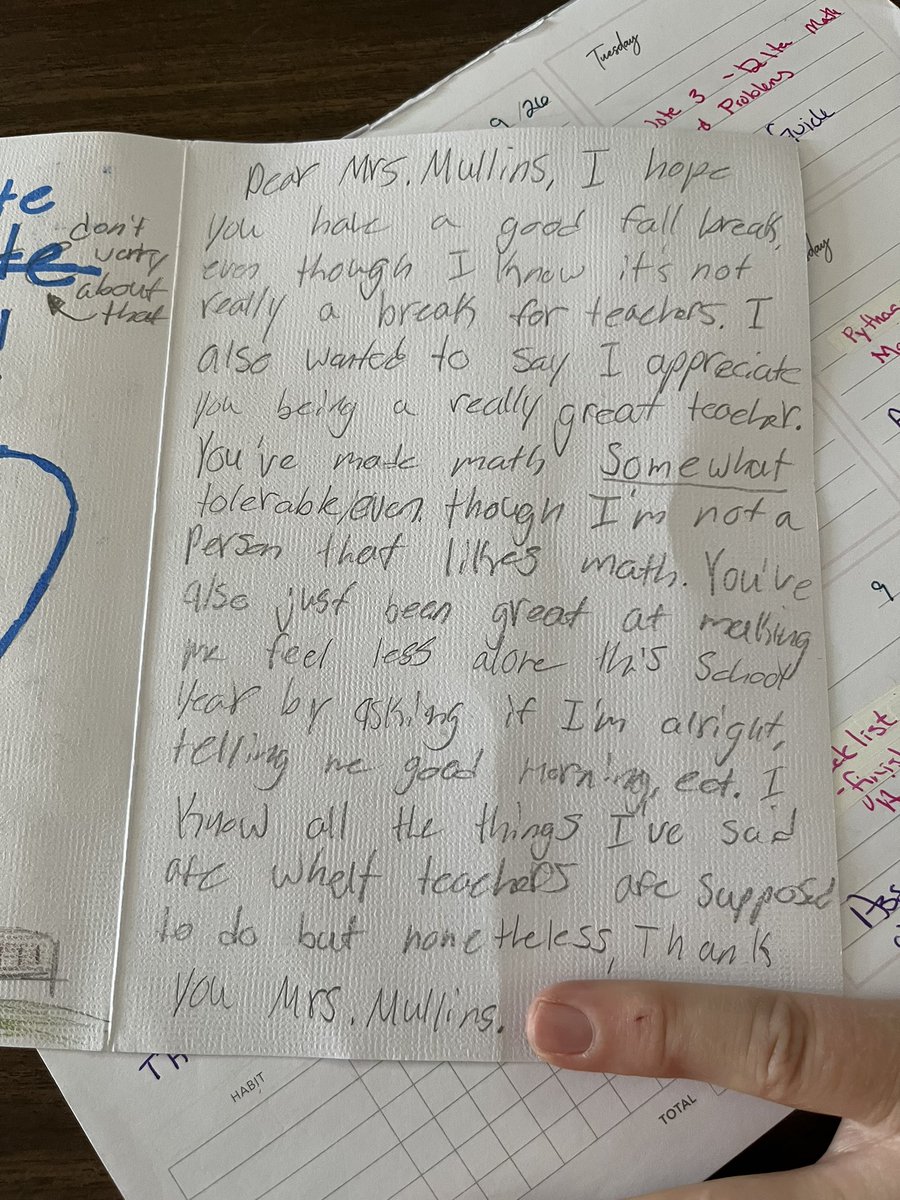 Tuesday
9/26
Note 3 - Delta Math
Problems
Guide
te
te
don't
worry
about
that
Dear Mrs. Mullins, I hope
you have a good fall break,
even though I know it's not
really a break for teachers. I
also wanted to say I appreciate
you being a really great teacher.
You've made math Somewhat
tolerable, even though I'm not a
Person that likes math. You've
also just been great at making
me feel less alone this School
Year by asking if I'm alright,
telling me good Morning, ect. I
Know all the things I've said
are what teachers are supposed
to do but nonetheless, Thank
You Mrs. Mullins.
day
Pythag
9
TH
HABIT
TOTAL